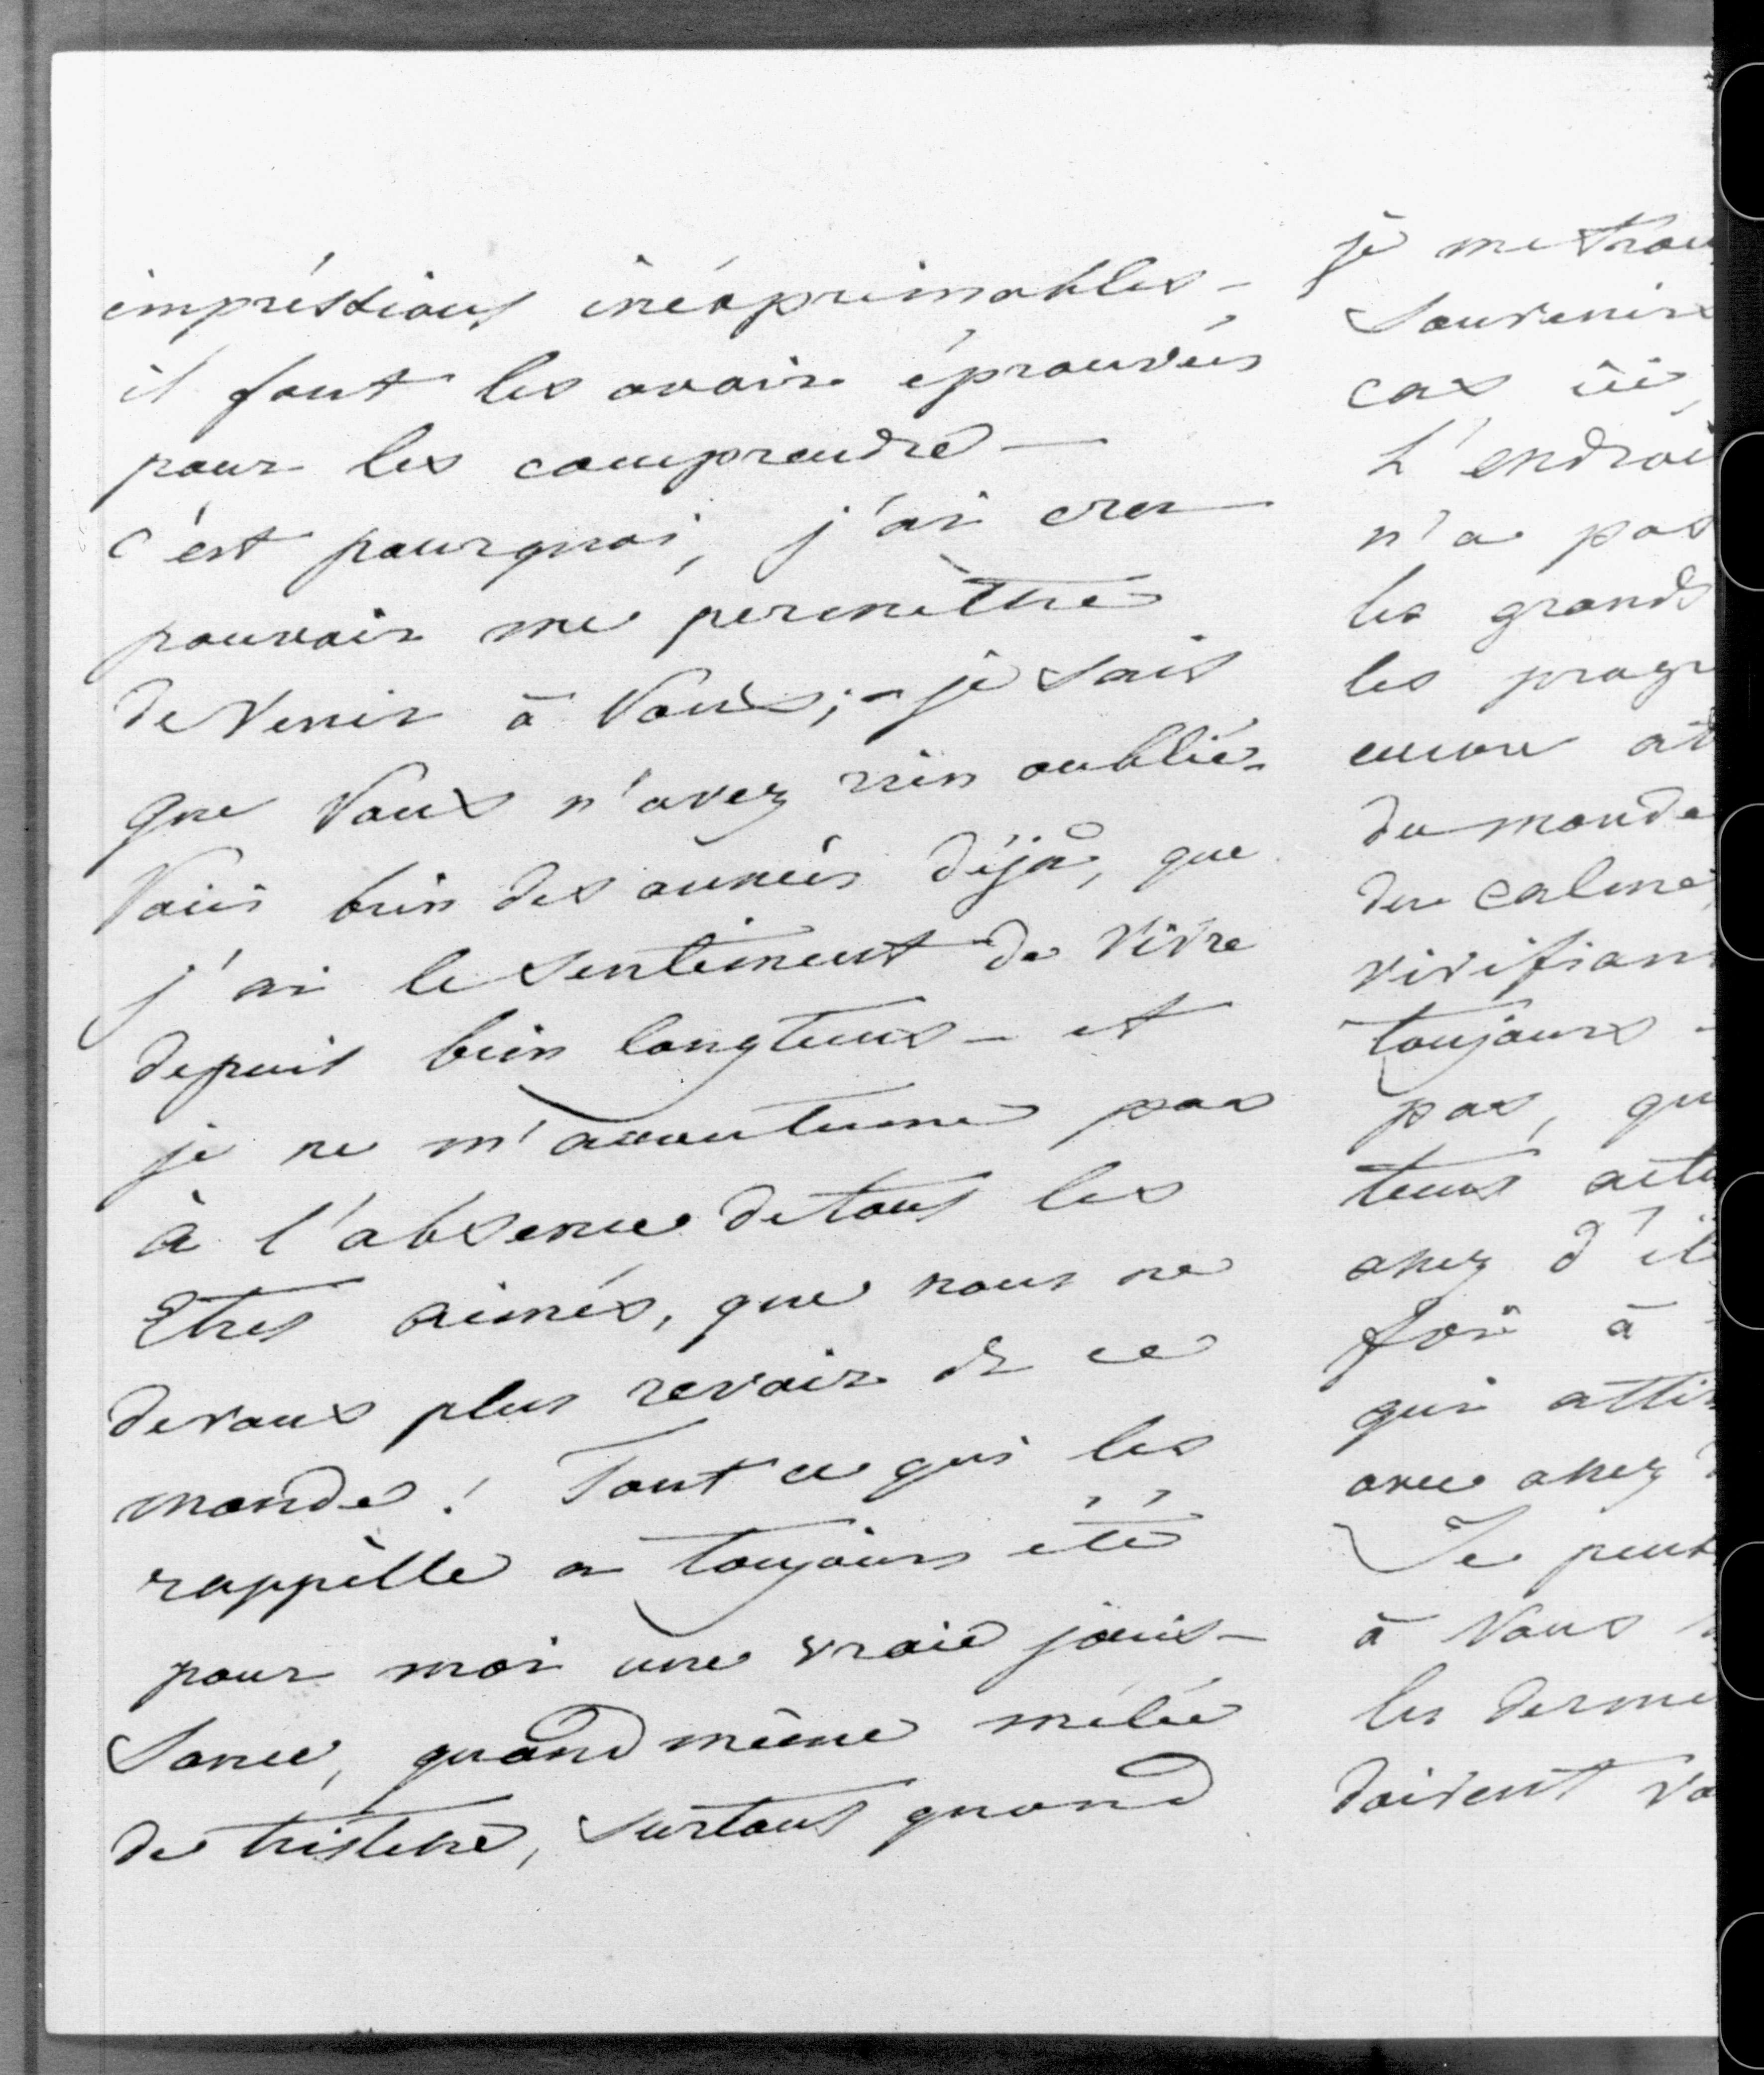 impréssions inéxprimables –
il faut les avoir éprouvées
pour les comprendre –
c'est pourquoi, j'ai cru
pouvoir me permèttre
de venir à Vous; – je sais
que Vous n'avez rien oublié –
Voici bien des années déjà, que
j'ai le sentiment de vivre
depuis bien longtems – et
je ne m'accoutume pas
à l'absence de tous les
Etres aimés, que nous ne
devons plus revoir de ce
monde! Tout ce qui les
rappèlle a toujours été
pour moi une vraie jouis–
sance, quand même mêlée
de tristesse, surtout quand
je me trou
souvenirs
cas ici,
L'endroi
n'a pas
les grands
les progr
encore at
du monde
du calme,
vivifian
toujours –
pas, qu
tems
assez d'
foi à
qui atti
avec assez
Je
à Vous
les
doivent vo